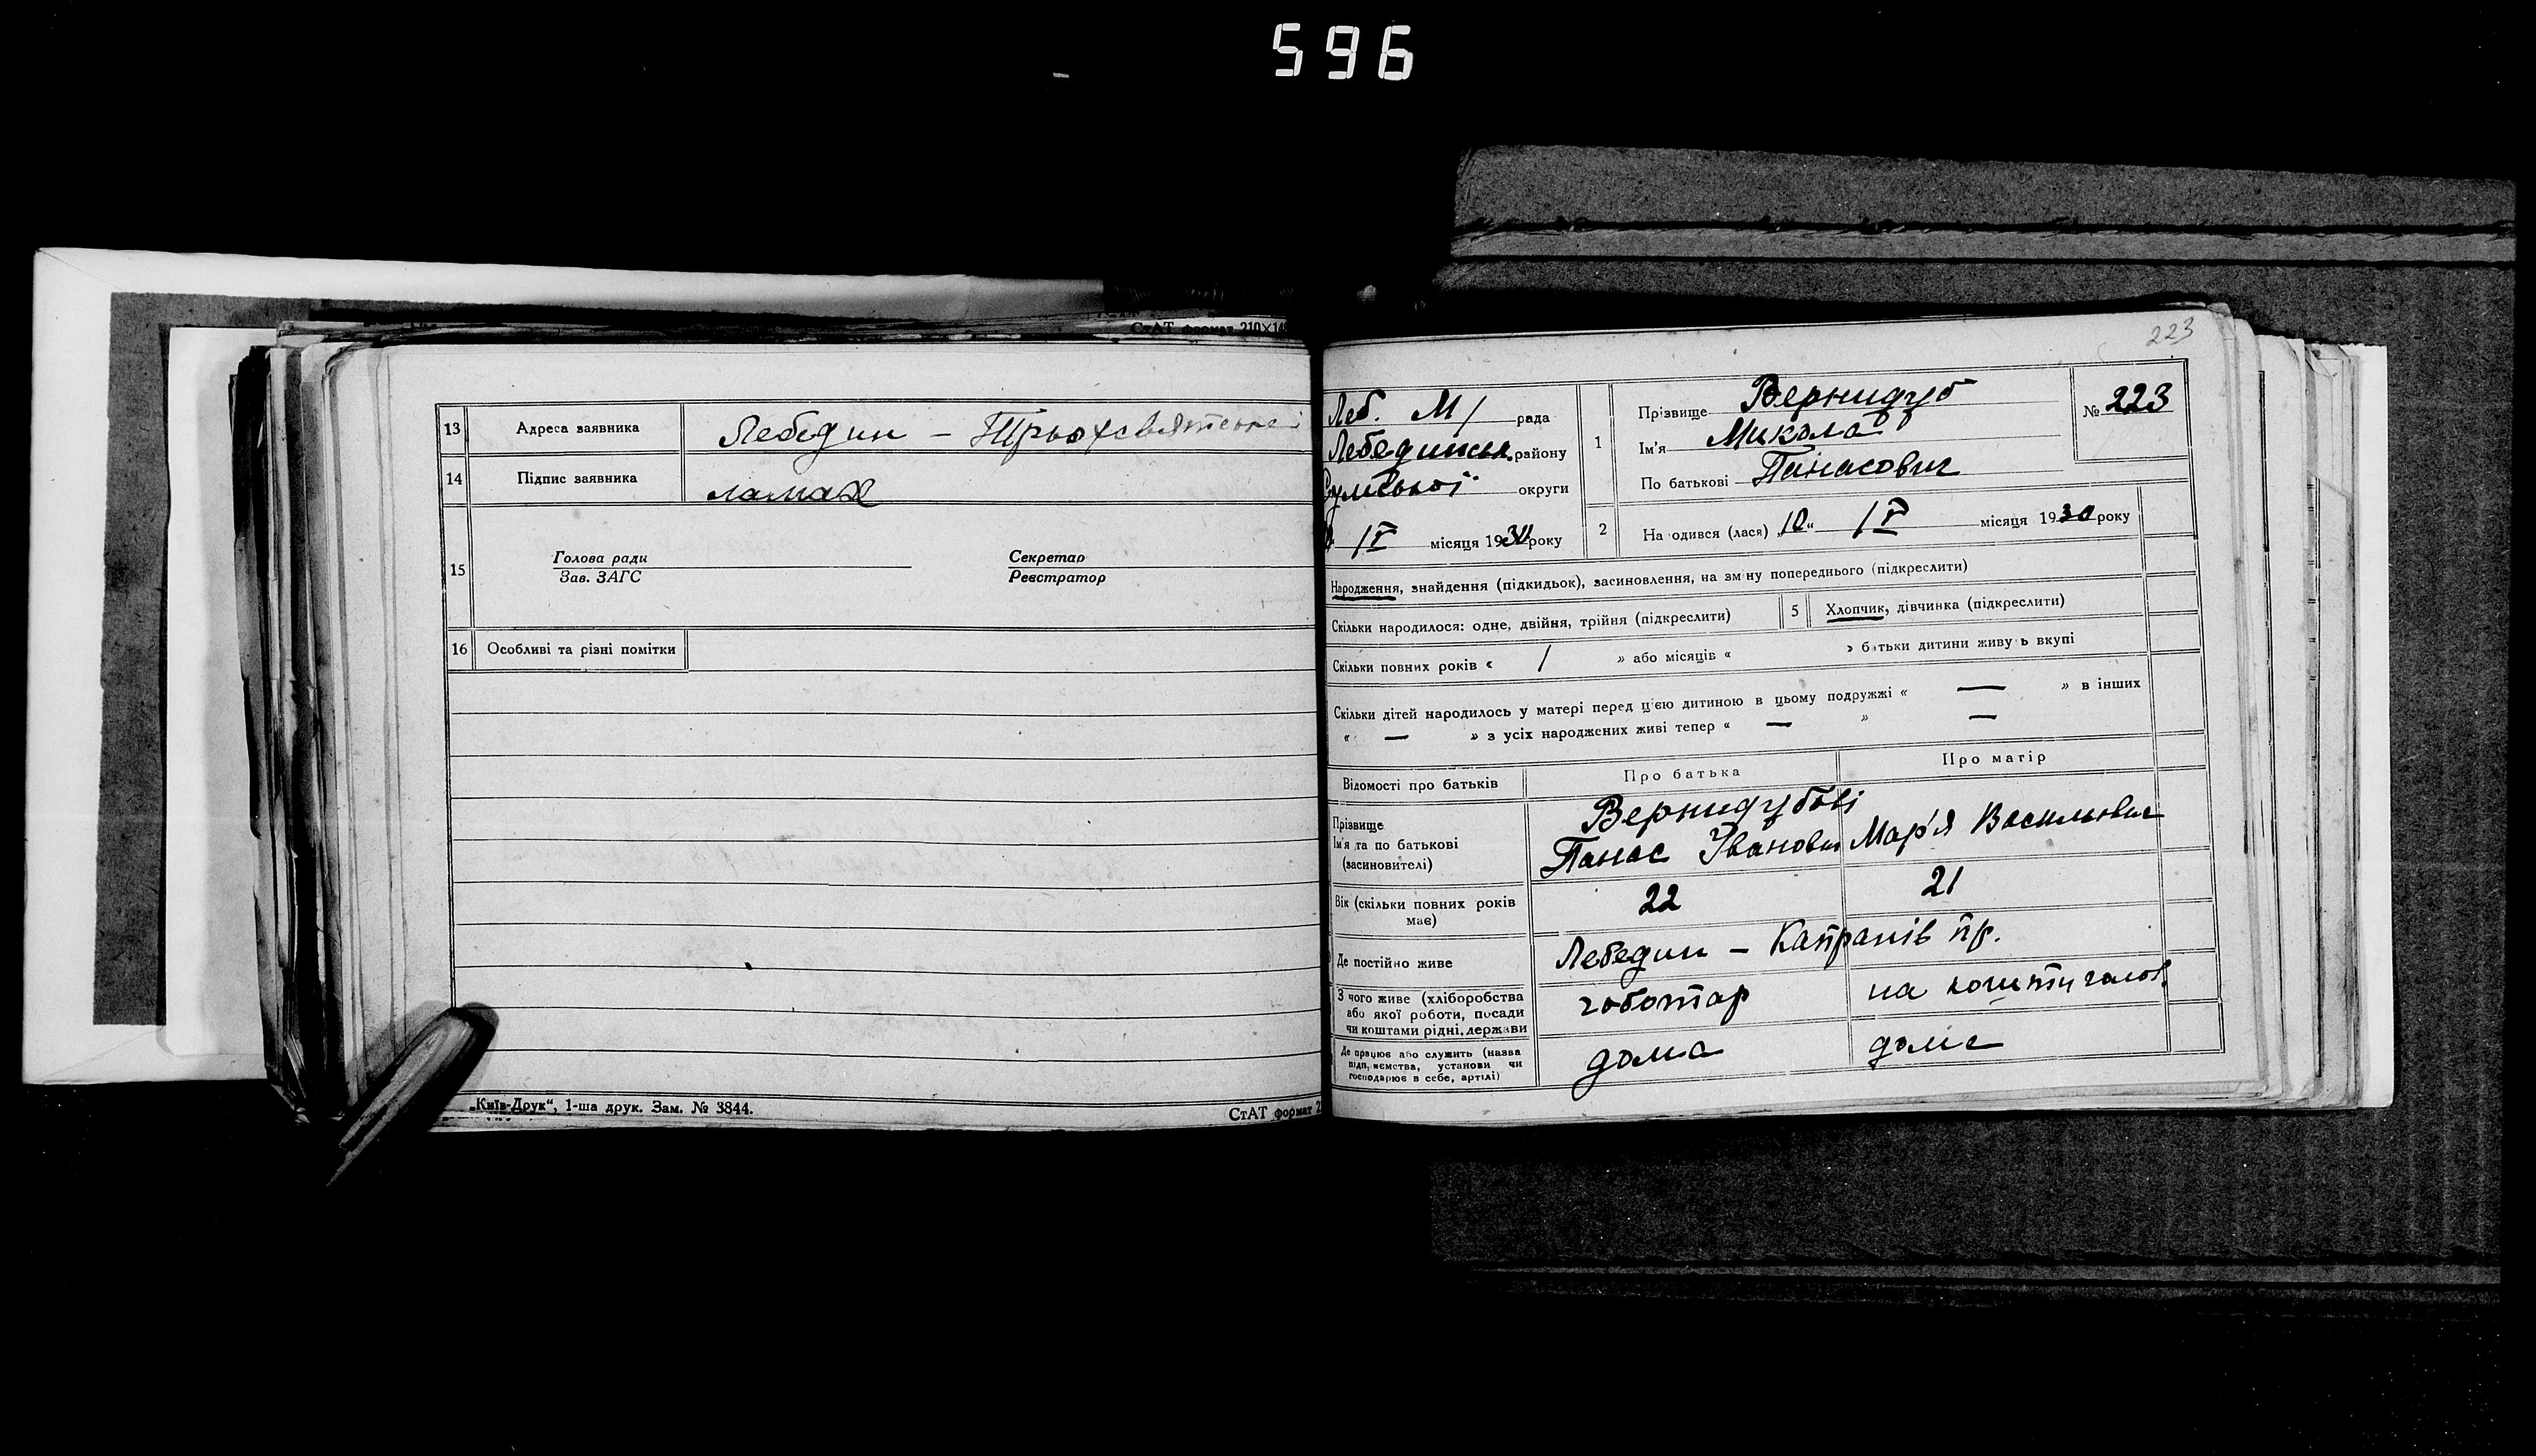 596
СтАТ формат 210×14
13 Адреса заявника Лебедин – Трьохсвятська
14 Підпис заявника ламах
15 Голова ради Секретар
Зав. ЗАГС Реєстратор
16 Особливі та різні помітки
„Київ-Друк“, 1-ша друк. Зам. № 3844. СтАТ формат 2
223
Леб. М/ рада
Лебединськ. району
Сумської округи
IV місяця 1930 року
1 Прізвище Вернидуб
Ім'я Микола
По батькові Панасович
№ 223
2 На одився (лася) „10“ IV місяця 1930 року
Народження, знайдення (підкидьок), засиновлення, на зміну попереднього (підкреслити)
Скільки народилося: одне, двійня, трійня (підкреслити) 5 Хлопчик, дівчинка (підкреслити)
Скільки повних років « 1 » або місяців « » батьки дитини живуть вкупі
Скільки дітей народилось у матері перед цією дитиною в цьому подружжі « — » в інших
« — » з усіх народжених живі тепер « — » —
Відомості про батьків Про батька Про матір
Прізвище Вернидубові
Ім'я та по батькові Панас Іванович Мар'я Васильовна
(засиновителі)
Вік (скільки повних років має) 22 21
Де постійно живе Лебедин – Капранів пр.
З чого живе (хліборобства чоботар на кошти голов.
або якої роботи, посади
чи коштами рідні, держави
Де працює або служить (назва дома дома
підп, иємства, установи чи
господарює в себе, артілі)